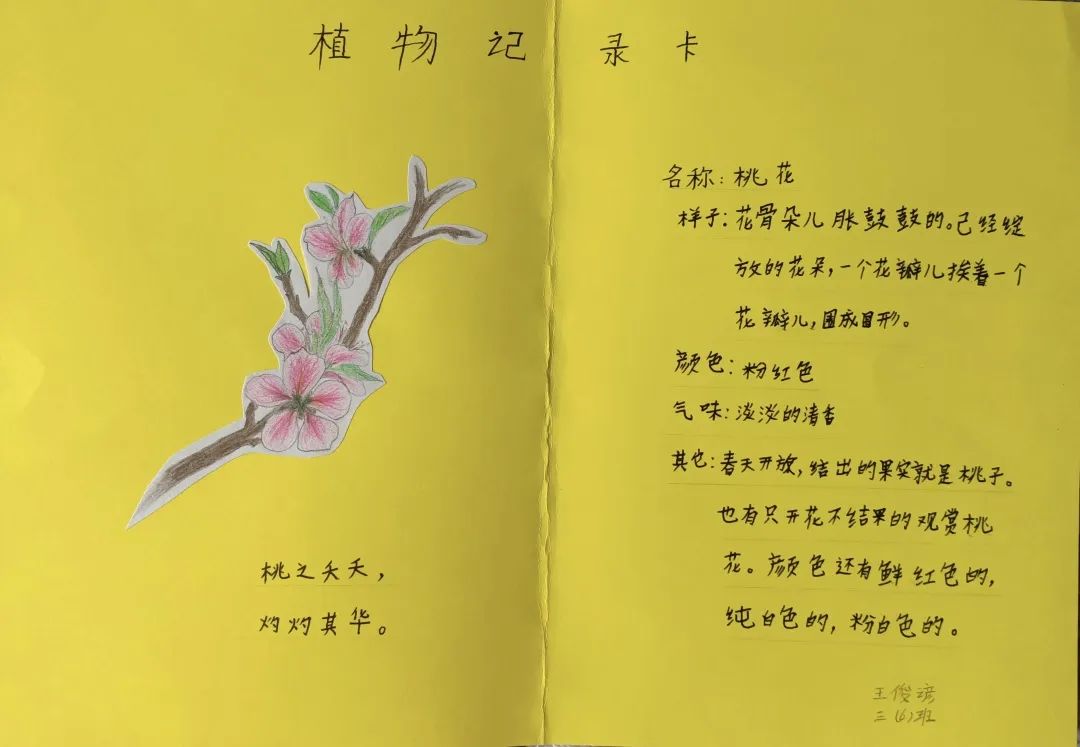 植物记录卡
桃之夭夭，
灼灼其华。
名称：桃花
样子：花骨朵儿胀鼓鼓的。已经绽
放的花朵，一个花瓣儿挨着一个
花瓣儿，围成圆形。
颜色：粉红色
气味：淡淡的清香
其他：春天开放，结出的果实就是桃子。
也有只开花不结果的观赏桃
花。颜色还有鲜红色的，
纯白色的，粉白色的。
王俊
三（6）班